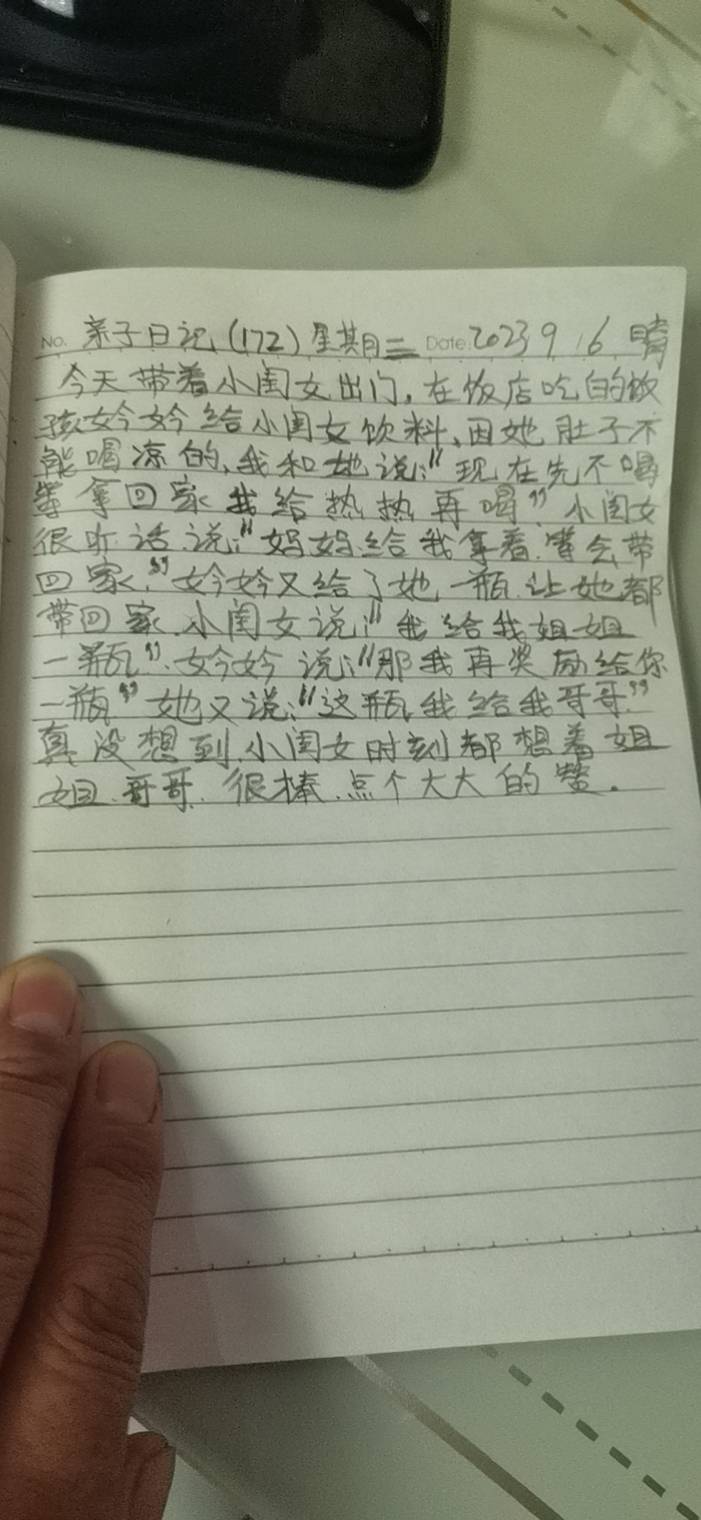 No. 亲子日记(172)星期二 Date. 2023 9 16 晴
今天带着小闺女出门,在饭店吃的饭
孩妗妗给小闺女饮料,因她肚子不
能喝凉的,我和她说:"现在先不喝
等拿回家我给热热再喝",小闺女
很听话说:"妈妈给我拿着,等会带
回家,"妗妗又给了她一瓶,让她都
带回家,小闺女说:"我给我姐姐
一瓶",妗妗说:"那我再奖励给你
一瓶"她又说:"这瓶我给我哥哥"
真没想到,小闺女时刻都想着姐
姐、哥哥,很棒,点个大大的赞。